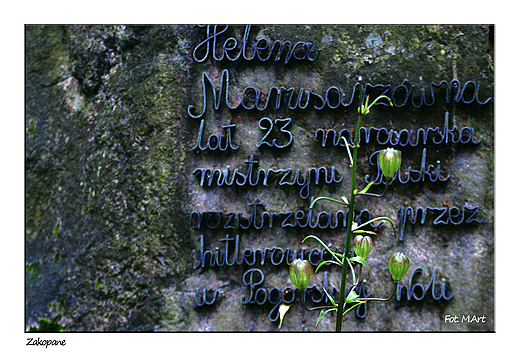 Helena
Marusarzówna
lat 23 narciarska
mistrzyni Polski
rozstrzelana przez
hitlerowców
w Pogórskiej Woli
Fot. M.Art
Zakopane